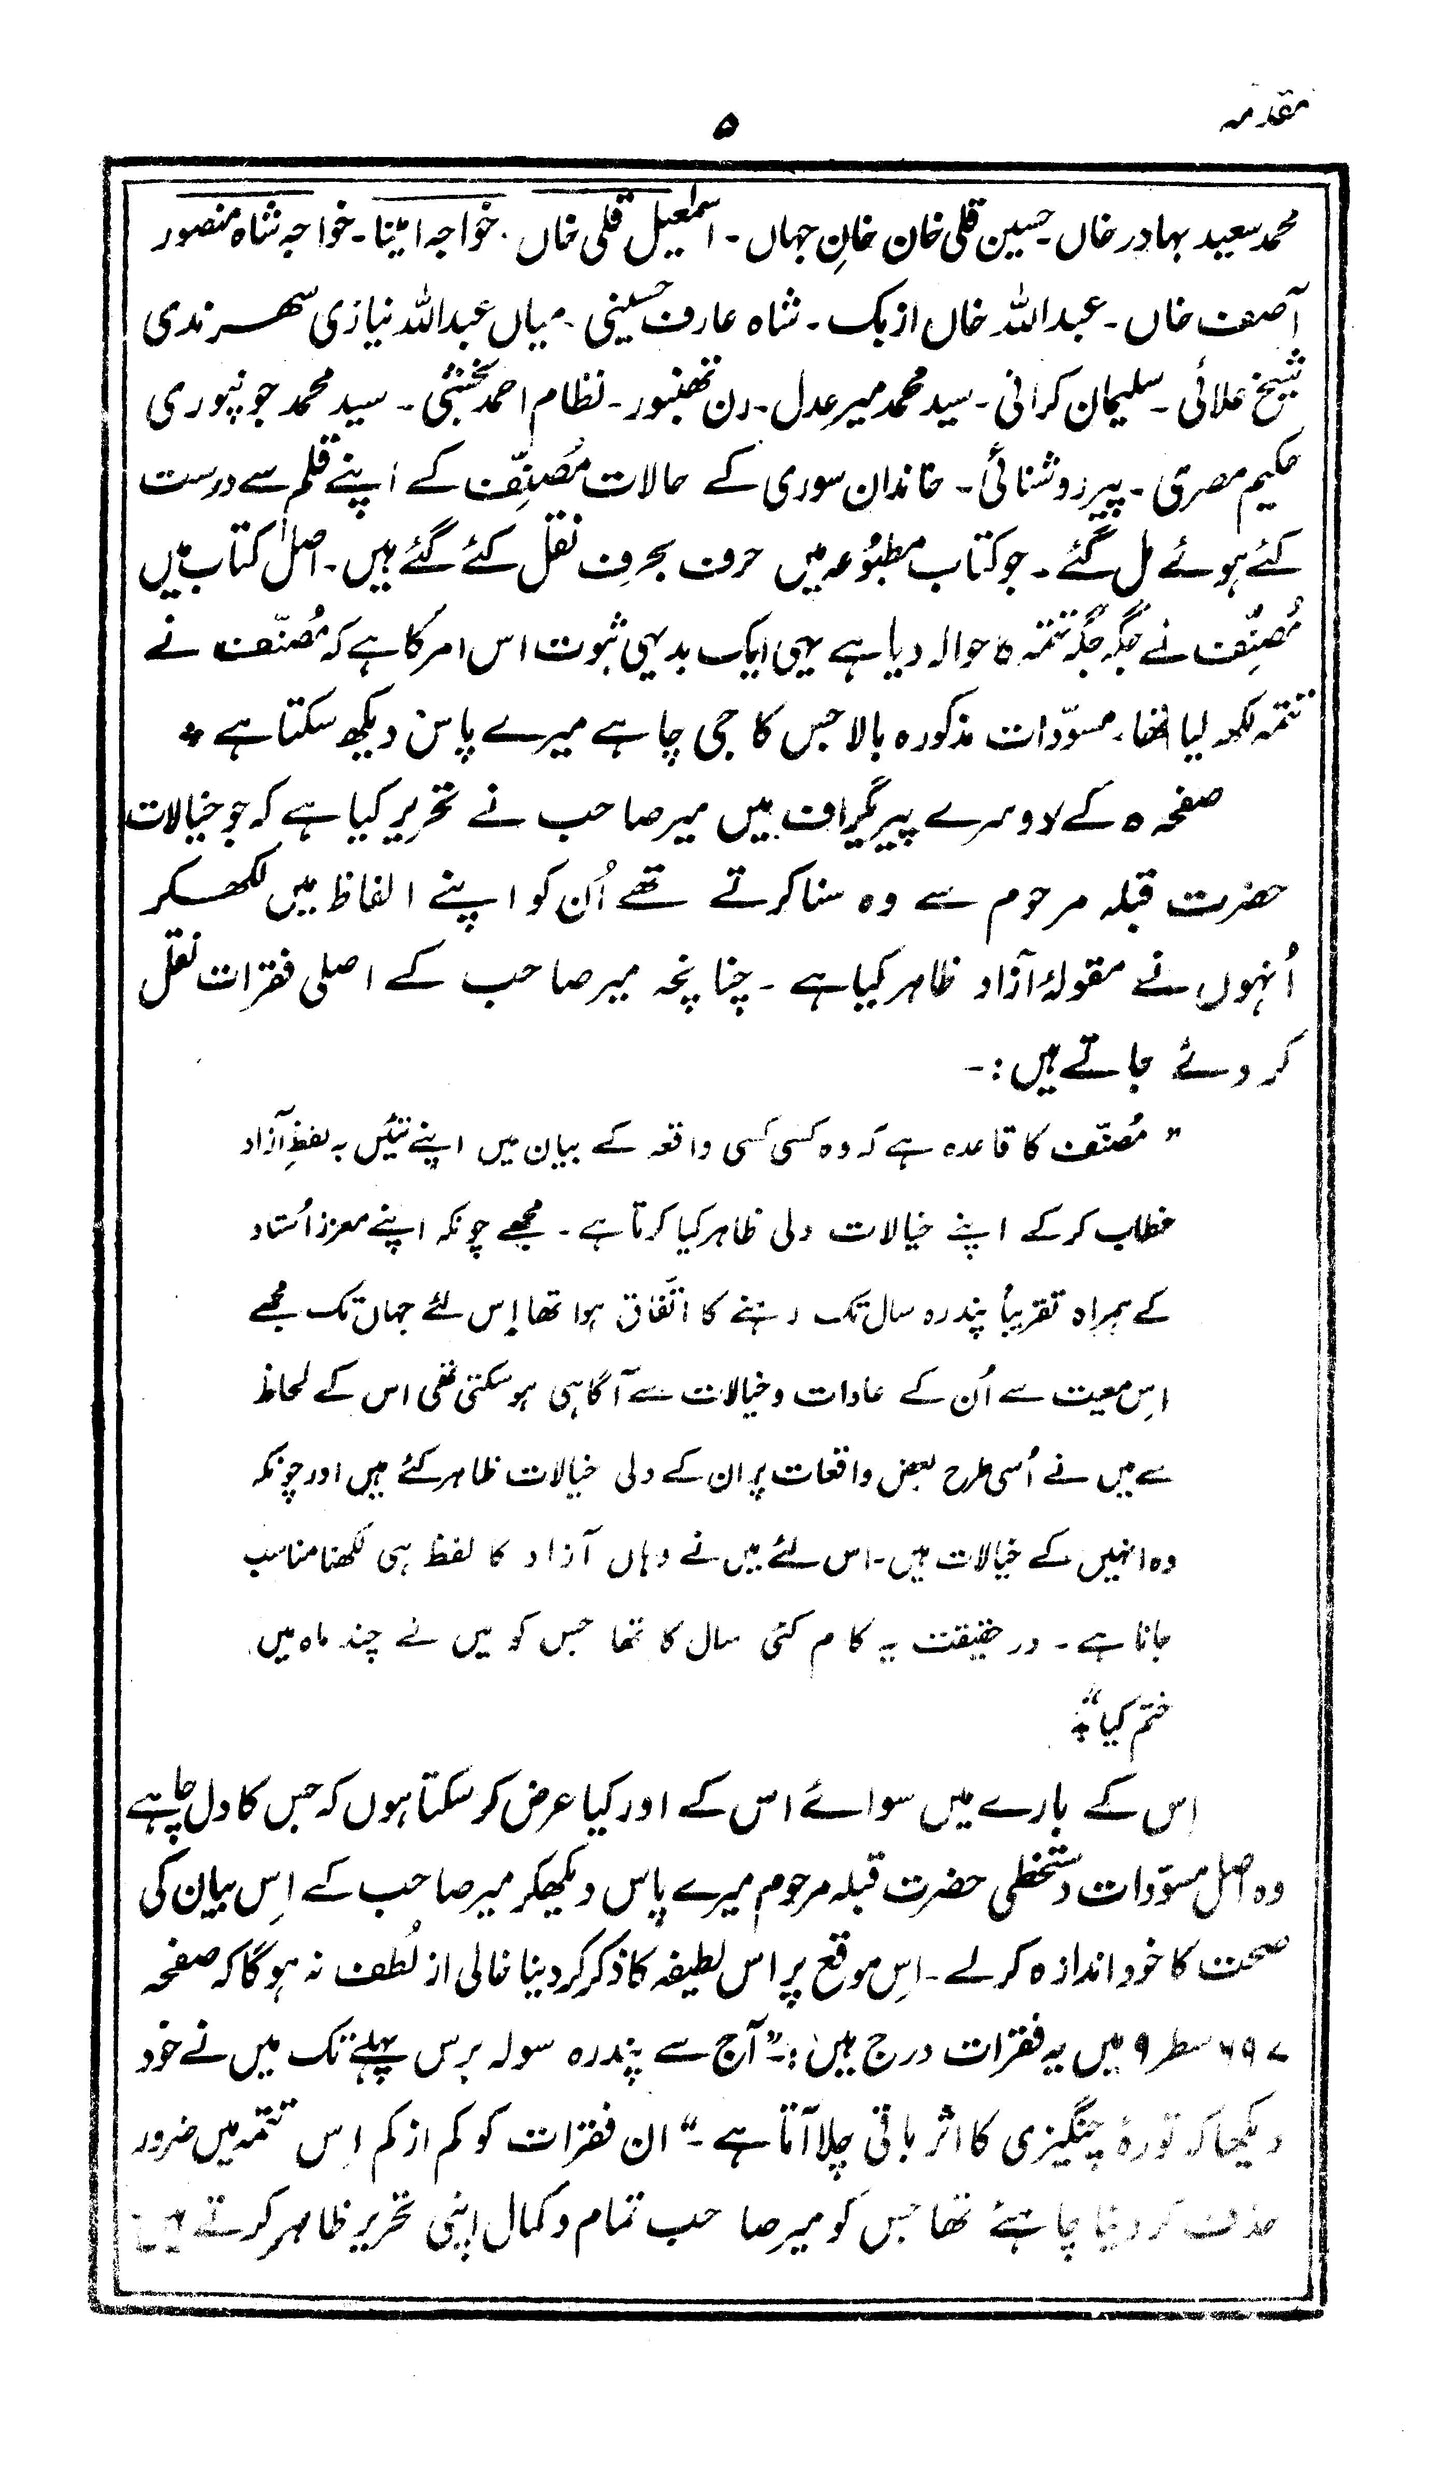 مقدمہ
۵
محمد سعید بہادر خاں۔ حسین قلی خان خانِ جہاں۔ اسمٰعیل قلی خاں۔ خواجہ امینا۔ خواجہ شاہ منصور
آصف خاں۔ عبداللہ خاں ازبک۔ شاہ عارف حسینی۔ میاں عبداللہ نیازی سھرندی
شیخ علائی۔ سلیمان کرانی۔ سید محمد میر عدل۔ رن تھنبور۔ نظام احمد بخشی۔ سید محمد جونپوری
حکیم مصری۔ پیر روشنائی۔ خاندان سوری کے حالات مُصنِّف کے اپنے قلم سے درست
کئے ہوئے مل گئے۔ جو کتاب مطبُوعہ میں حرف بحرف نقل کئے گئے ہیں۔ اصل کتاب میں
مُصنِّف نے جگہ جگہ تتمہ کا حوالہ دیا ہے یہی ایک بدیہی ثبوت اس امر کا ہے کہ مُصنّف نے
تتمہ لکھ لیا تھا۔ مسوّدات مذکورہ بالا جس کا جی چاہے میرے پاس دیکھ سکتا ہے ٭
صفحہ ۵ کے دوسرے پیریگراف میں میر صاحب نے تحریر کیا ہے کہ جو خیالات
حضرت قبلہ مرحوم سے وہ سنا کرتے تھے اُن کو اپنے الفاظ میں لکھکر
اُنہوں نے مقولۂ آزاد ظاہر کیا ہے۔ چنانچہ میر صاحب کے اصلی فقرات نقل
کر دئے جاتے ہیں:۔
” مُصنّف کا قاعدہ ہے کہ وہ کسی کسی واقعہ کے بیان میں اپنے تئیں بہ لفظِ آزاد
خطاب کر کے اپنے خیالات دلی ظاہر کیا کرتا ہے۔ مجھے چونکہ اپنے معزز اُستاد
کے ہمراہ تقریباً پندرہ سال تک رہنے کا اتّفاق ہوا تھا اِس لئے جہاں تک مجھے
اِس معیت سے اُن کے عادات و خیالات سے آگاہی ہو سکتی تھی اس کے لحاظ
سے میں نے اُسی طرح بعض واقعات پر ان کے دلی خیالات ظاہر کئے ہیں اور چونکہ
وہ انہیں کے خیالات ہیں۔ اس لئے میں نے وہاں آزاد کا لفظ ہی لکھنا مناسب
جانا ہے۔ در حقیقت یہ کام کئی سال کا تھا جس کو میں نے چند ماہ میں
ختم کیا“ ٭
اس کے بارے میں سوائے اس کے اور کیا عرض کر سکتا ہوں کہ جس کا دل چاہے
وہ اصل مسوّدات دستخطی حضرت قبلہ مرحوم میرے پاس دیکھکر میر صاحب کے اِس بیان کی
صحت کا خود اندازہ کر لے۔ اِس موقع پر اس لطیفہ کا ذکر کر دینا خالی از لُطف نہ ہو گا کہ صفحہ
۶۹۷ سطر ۹ میں یہ فقرات درج ہیں:۔ ” آج سے پندرہ سولہ برس پہلے تک میں نے خود
دیکھا کہ تورۂ چنگیزی کا اثر باقی چلا آتا ہے۔“ ان فقرات کو کم از کم اِس تتمّہ میں ضرور
حذف کر دینا چاہئے تھا جس کو میر صاحب تمام و کمال اپنی تحریر ظاہر کرتے ہیں۔